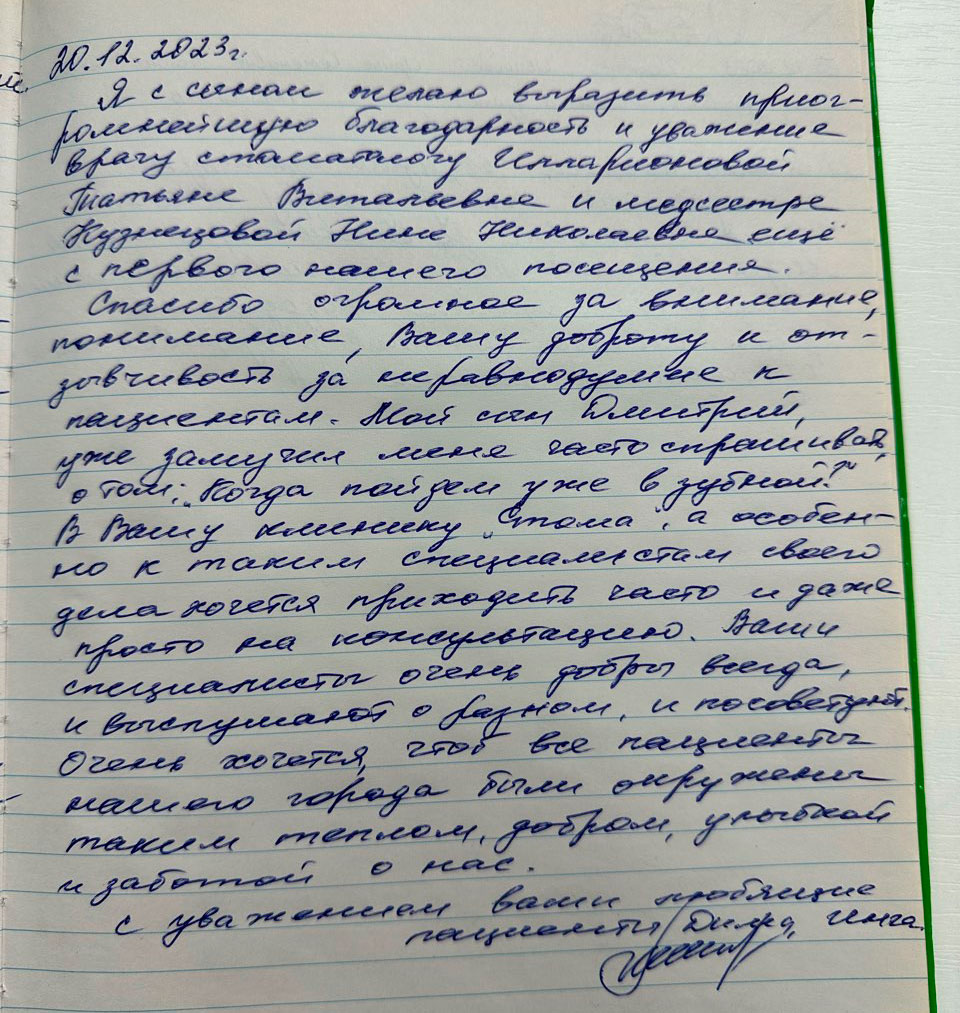 20.12.2023г.
Я с сыном желаю выразить приог-
ромнейшую благодарность и уважение
врачу стоматологу Илларионовой
Татьяне Витальевне и медсестре
Кузнецовой Нине Николаевне ещё
с первого нашего посещения.
Спасибо огромное за внимание,
понимание, Вашу доброту и от-
зывчивость за неравнодушие к
пациентам. Мой сын Дмитрий,
уже замучил меня часто спрашивать
о том: "Когда пойдем уже в зубной?"
В Вашу клинику "Стома", а особен-
но к таким специалистам своего
дела хочется приходить часто и даже
просто на консультацию. Ваши
специалисты очень добры всегда,
и выслушают о разном, и посоветуют.
Очень хочется, чтоб все пациенты
нашего города были окружены
таким теплом, добром, улыбкой
и заботой о нас.
С уважением ваши любящие
пациенты Дима, Инга.